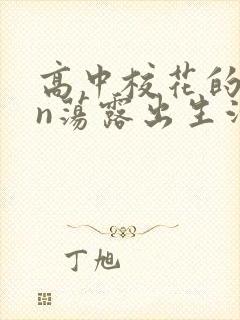 高中校花的
n荡露出生
丁旭